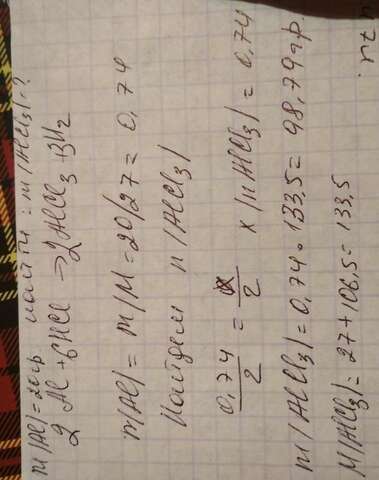 m(Al)=20гр найти: m(AlCl₃)-?
2Al + 6HCl → 2AlCl₃ + 3H₂
m(Al) = m/M = 20/27 = 0,74
Найдем n(AlCl₃)
0,74/2 = x/2 x(nAlCl₃) = 0,74
m(AlCl₃) = 0,74 · 133,5 = 98,79гр.
M(AlCl₃) = 27+106,5 = 133,5